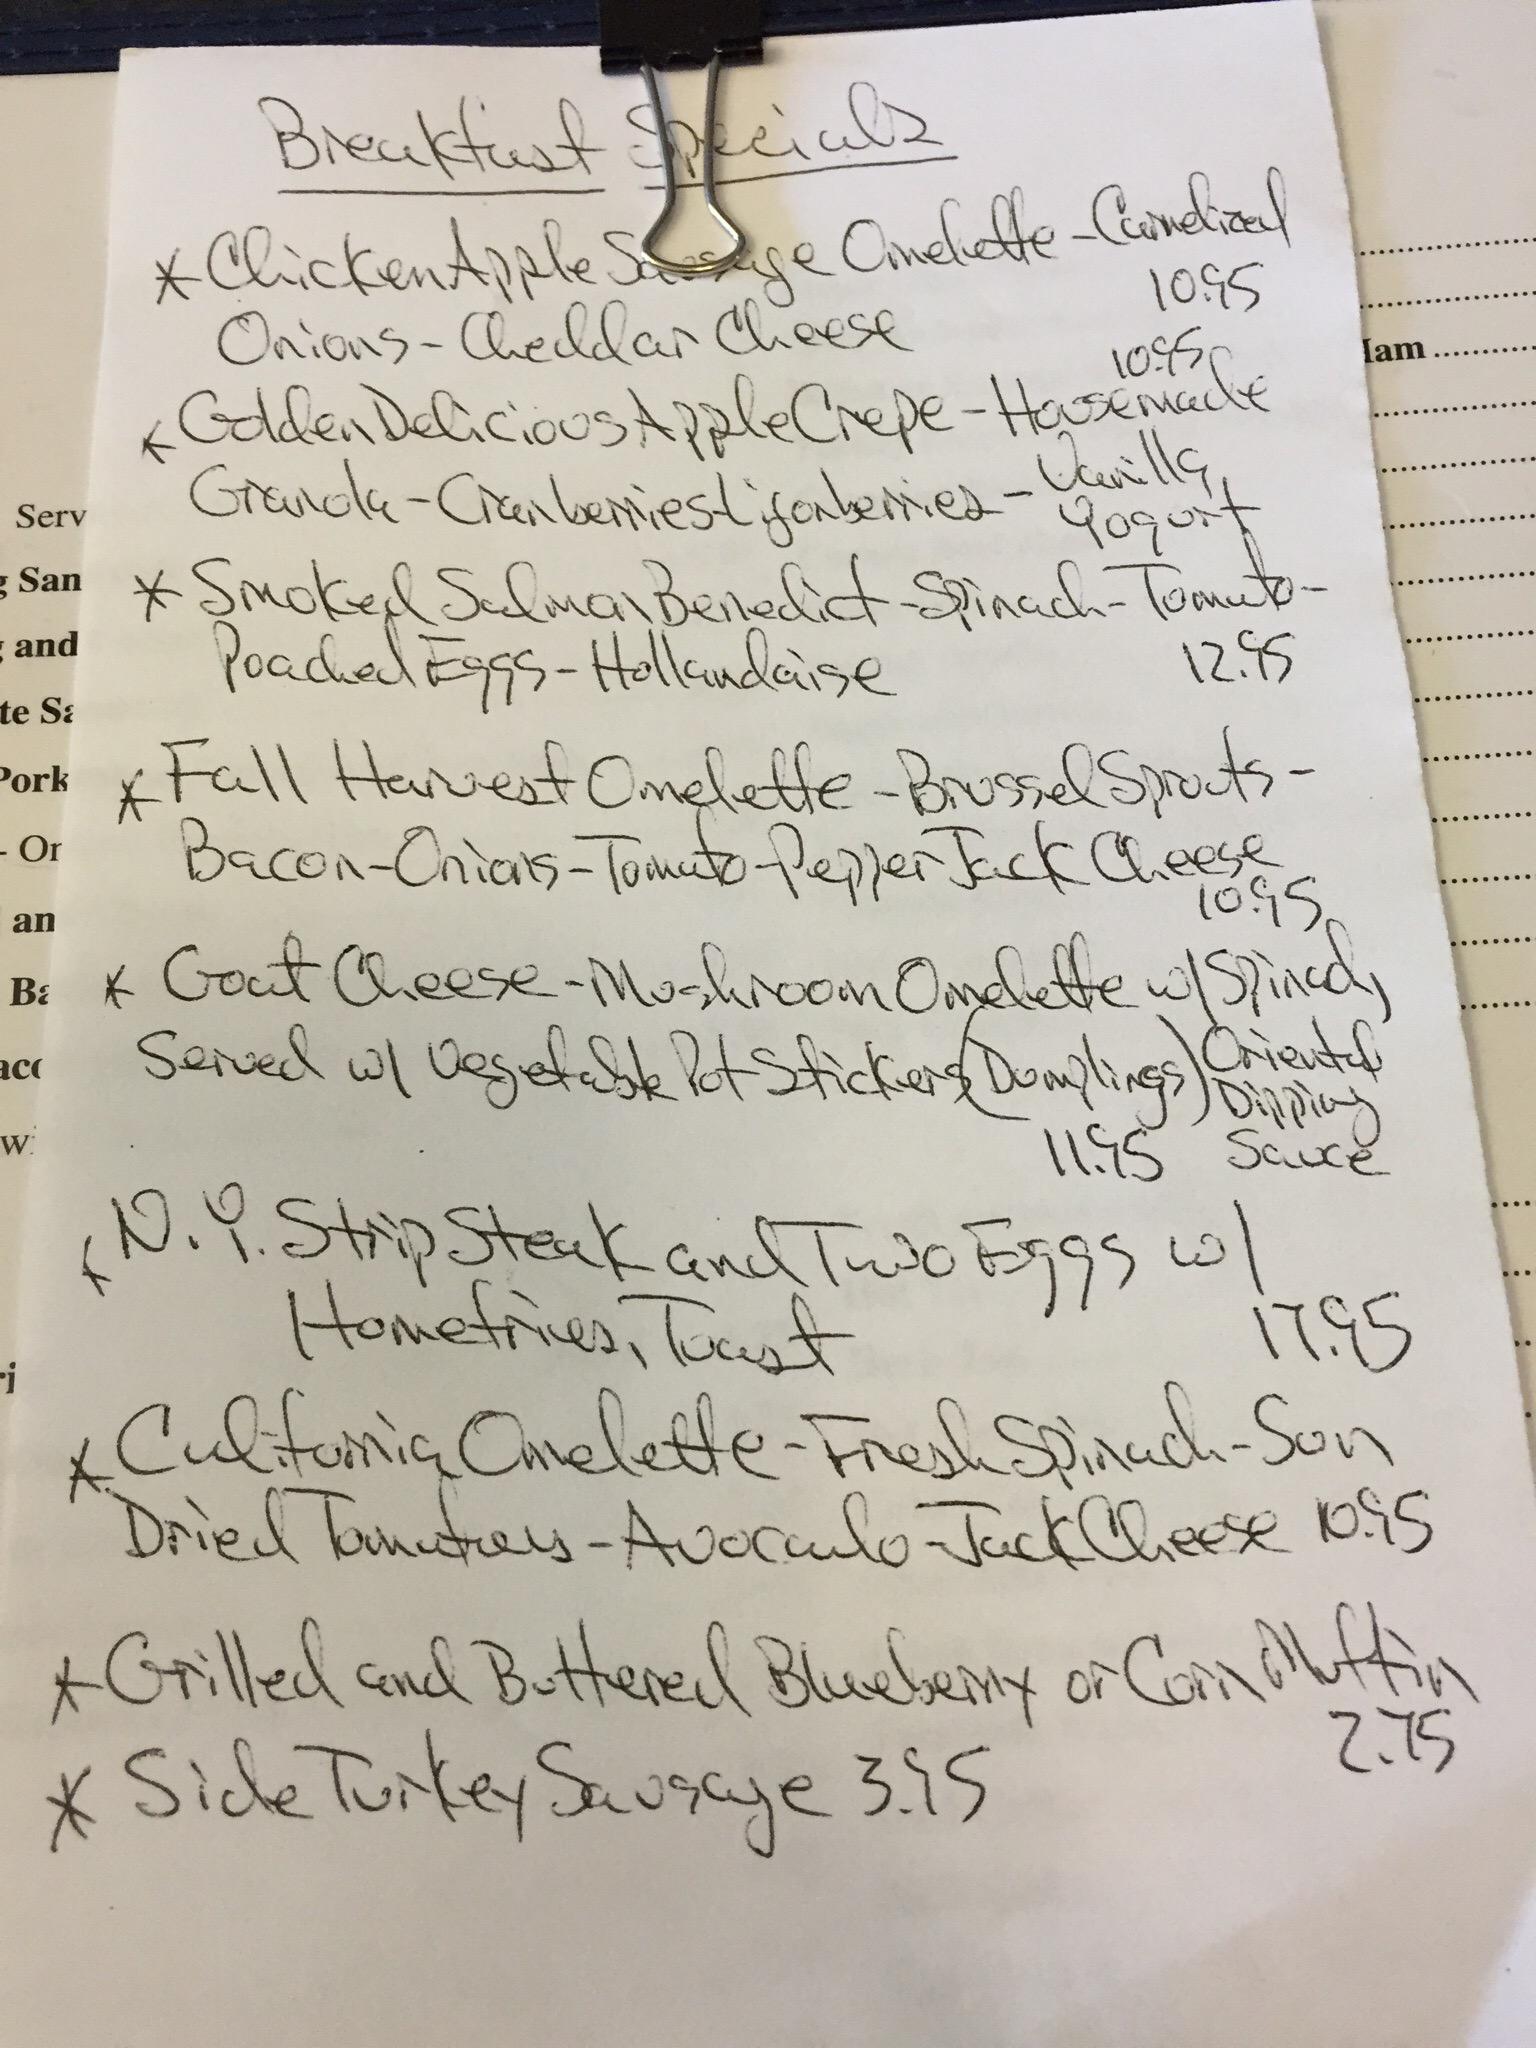 Breakfast Specials
* Chicken Apple Sausage Omelette - Carmelized
10.95
Onions - Cheddar Cheese
10.95
* Golden Delicious Apple Crepe - Housemade
Granola - Cranberries - Ligonberries - Vanilla
Yogurt
* Smoked Salmon Benedict - Spinach - Tomato -
Poached Eggs - Hollandaise 12.95
* Fall Harvest Omelette - Brussel Sprouts -
Bacon - Onions - Tomato - Pepper Jack Cheese
10.95
* Goat Cheese - Mushroom Omelette w/ Spinach,
Served w/ Vegetable Pot Stickers (Dumplings) Oriental
Dipping
11.95 Sauce
* N.Y. Strip Steak and Two Eggs w/
Homefries, Toast 17.95
* California Omelette - Fresh Spinach - Sun
Dried Tomatoes - Avocado - Jack Cheese 10.95
* Grilled and Buttered Blueberry or Corn Muffin
2.75
* Side Turkey Sausage 3.95
Serv
g San
g and
te Sa
Pork
- Or
an
Ba
aco
wi
ri
Ham